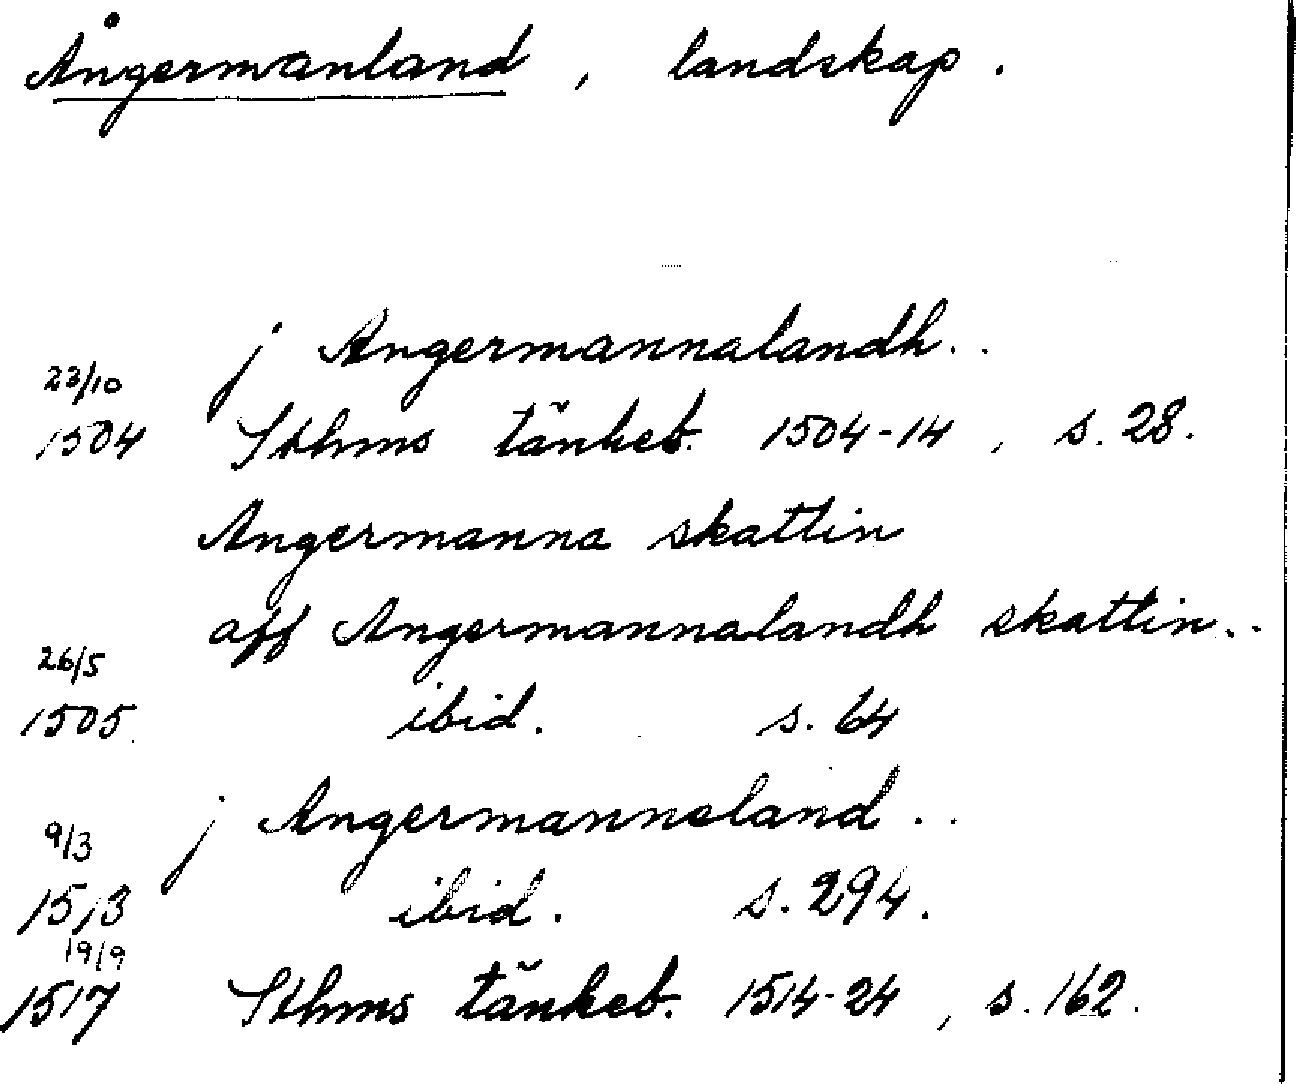 Ångermanland, landskap.
j Angermannalandh..
23/10
1504 Sthms tänkeb. 1504-14, s. 28.
Angermanna skattin
aff Angermannalandh skattin..
26/5
1505 ibid. s. 64
j Angermanneland..
9/3
1513 ibid. s. 294.
19/9
1517 Sthms tänkeb. 1514-24, s. 162.